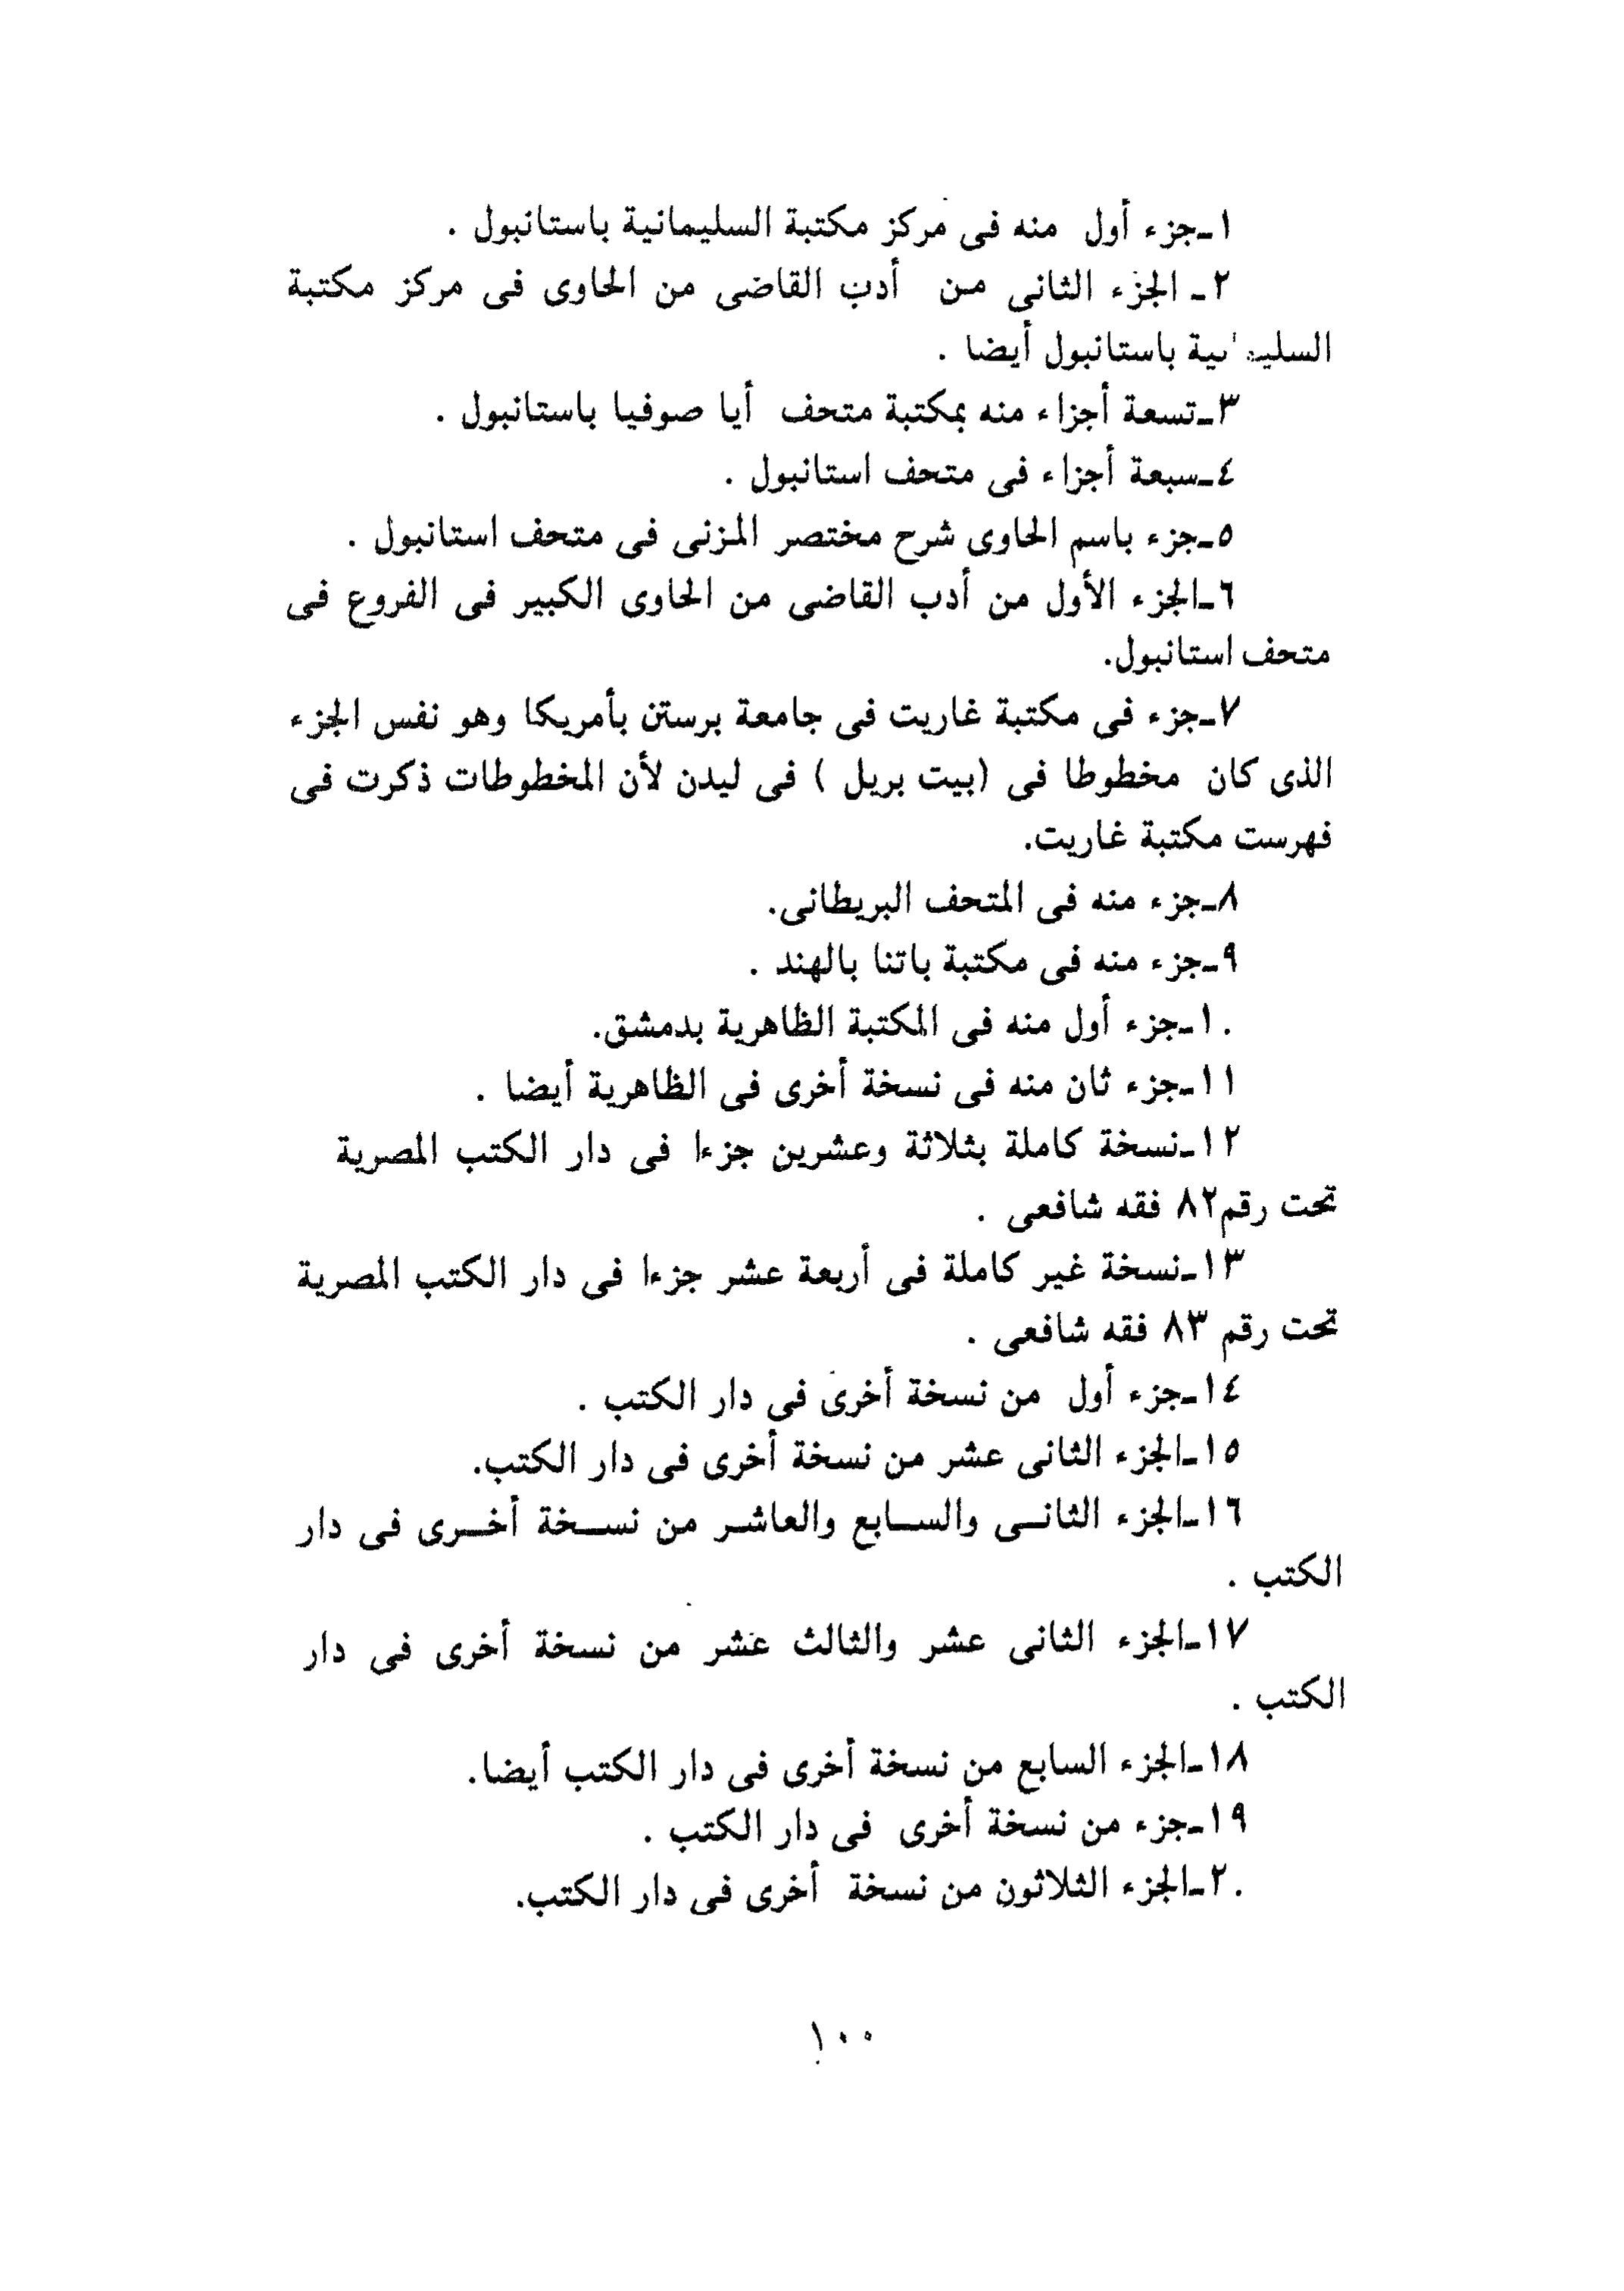 ١ـ جزء أول منه فى مركز مكتبة السليمانية باستانبول .
٢ـ الجزء الثانى من أدب القاضى من الحاوى فى مركز مكتبة
باستانبول أيضا .
٣ـ تسعة أجزاء منه بمكتبة متحف أيا صوفيا باستانبول .
٤ـ سبعة أجزاء فى متحف استانبول .
٥ـ جزء باسم الحاوى شرح مختصر المزنى فى متحف استانبول .
٦ـ الجزء الأول من أدب القاضى من الحاوى الكبير فى الفروع فى
متحف استانبول.
٧ـ جزء فى مكتبة غاريت فى جامعة برستن بأمريكا وهو نفس الجزء
الذى كان مخطوطا فى (بيت بريل ) فى ليدن لأن المخطوطات ذكرت فى
فهرست مكتبة غاريت.
٨ـ جزء منه فى المتحف البريطانى.
٩ـ جزء منه فى مكتبة باتنا بالهند .
١٠ـ جزء أول منه فى المكتبة الظاهرية بدمشق.
١١ـ جزء ثان منه فى نسخة أخرى فى الظاهرية أيضا .
١٢ـ نسخة كاملة بثلاثة وعشرين جزءا فى دار الكتب المصرية
تحت رقم ٨٢ فقه شافعى .
١٣ـ نسخة غير كاملة فى أربعة عشر جزءا فى دار الكتب المصرية
تحت رقم ٨٣ فقه شافعى .
١٤ـ جزء أول من نسخة أخرى فى دار الكتب .
١٥ـ الجزء الثانى عشر من نسخة أخرى فى دار الكتب.
١٦ـ الجزء الثانى والسابع والعاشر من نسخة أخرى فى دار
الكتب .
١٧ـ الجزء الثانى عشر والثالث عشر من نسخة أخرى فى دار
الكتب .
١٨ـ الجزء السابع من نسخة أخرى فى دار الكتب أيضا.
١٩ـ جزء من نسخة أخرى فى دار الكتب .
٢٠ـ الجزء الثلاثون من نسخة أخرى فى دار الكتب.
١٠٠